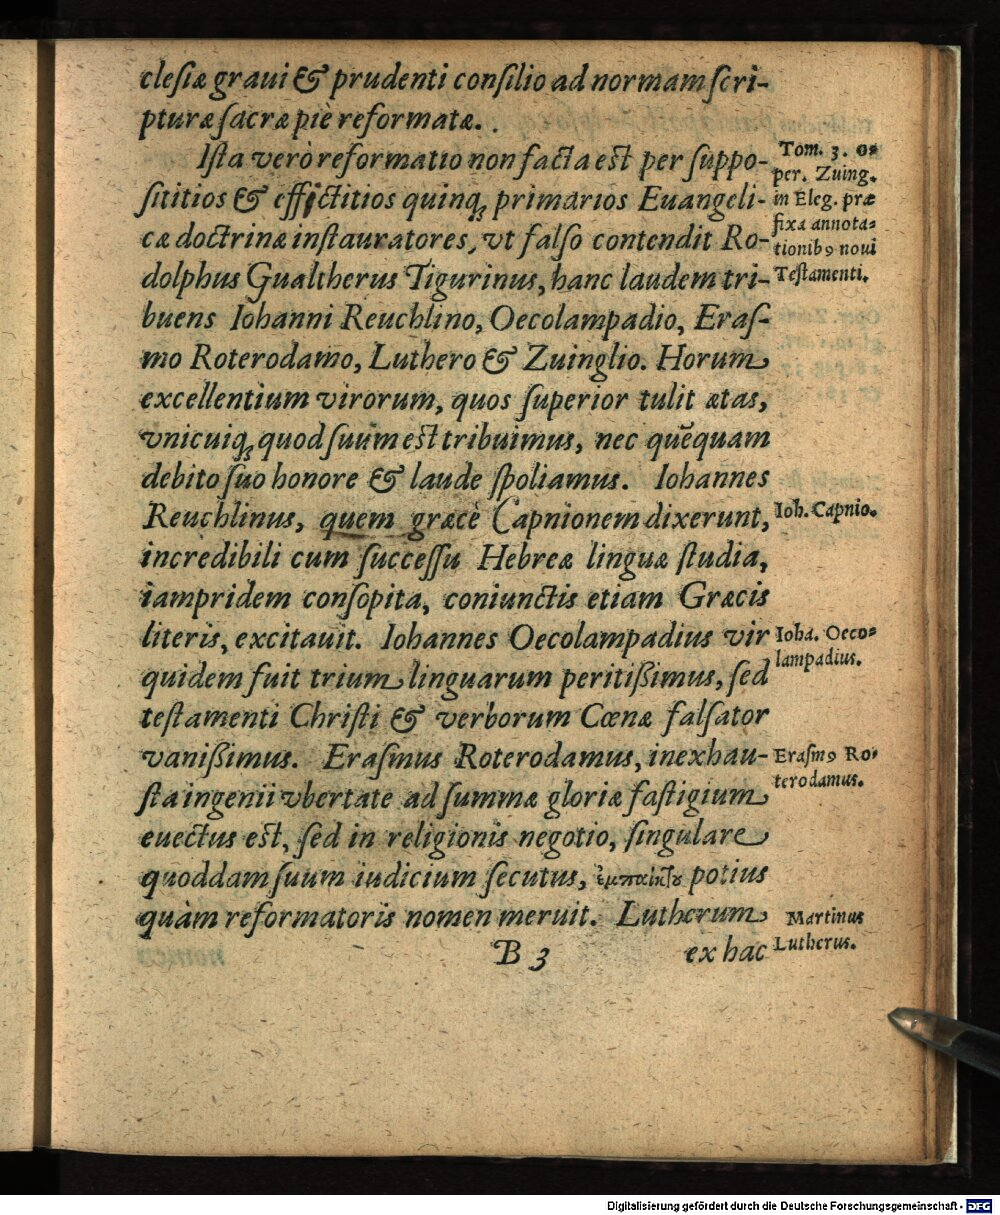 clesiæ graui & prudenti consilio ad normam scri-
pturæ sacræ piè reformatæ. .
Ista verò reformatio non facta est per suppo-
sititios & effictitios quinq; primarios Euangeli-
cæ doctrinæ instauratores, vt falso contendit Ro-
dolphus Gualtherus Tigurinus, hanc laudem tri-
buens Iohanni Reuchlino, Oecolampadio, Eras-
mo Roterodamo, Luthero & Zuinglio. Horum
excellentium virorum, quos superior tulit ætas,
vnicuiq; quod suum est tribuimus, nec quēquam
debito suo honore & laude spoliamus. Iohannes
Reuchlinus, quem græcè Capnionem dixerunt,
incredibili cum successu Hebreæ linguæ studia,
iampridem consopita, coniunctis etiam Græcis
literis, excitauit. Iohannes Oecolampadius vir
quidem fuit trium linguarum peritißimus, sed
testamenti Christi & verborum Cœnæ falsator
vanißimus. Erasmus Roterodamus, inexhau-
sta ingenii vbertate ad summæ gloriæ fastigium
euectus est, sed in religionis negotio, singulare
quoddam suum iudicium secutus, potius
quàm reformatoris nomen meruit. Lutherum
B 3 ex hac
Tom. 3. o-
per. Zuing.
in Eleg. præ
fixa annota-
tionibꝰ noui
Testamenti.
Ioh. Capnio.
Ioha. Oeco-
lampadius.
Erasmꝰ Ro-
terodamus.
Martinus
Lutherus.
Digitalisierung gefördert durch die Deutsche Forschungsgemeinschaft - DFG